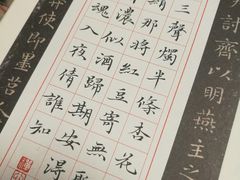 討齊以明燕主之
三聲燭半條杏花
那將紅豆寄無
濃似酒歸期安得
魂入夜倩誰知
使即墨莒人